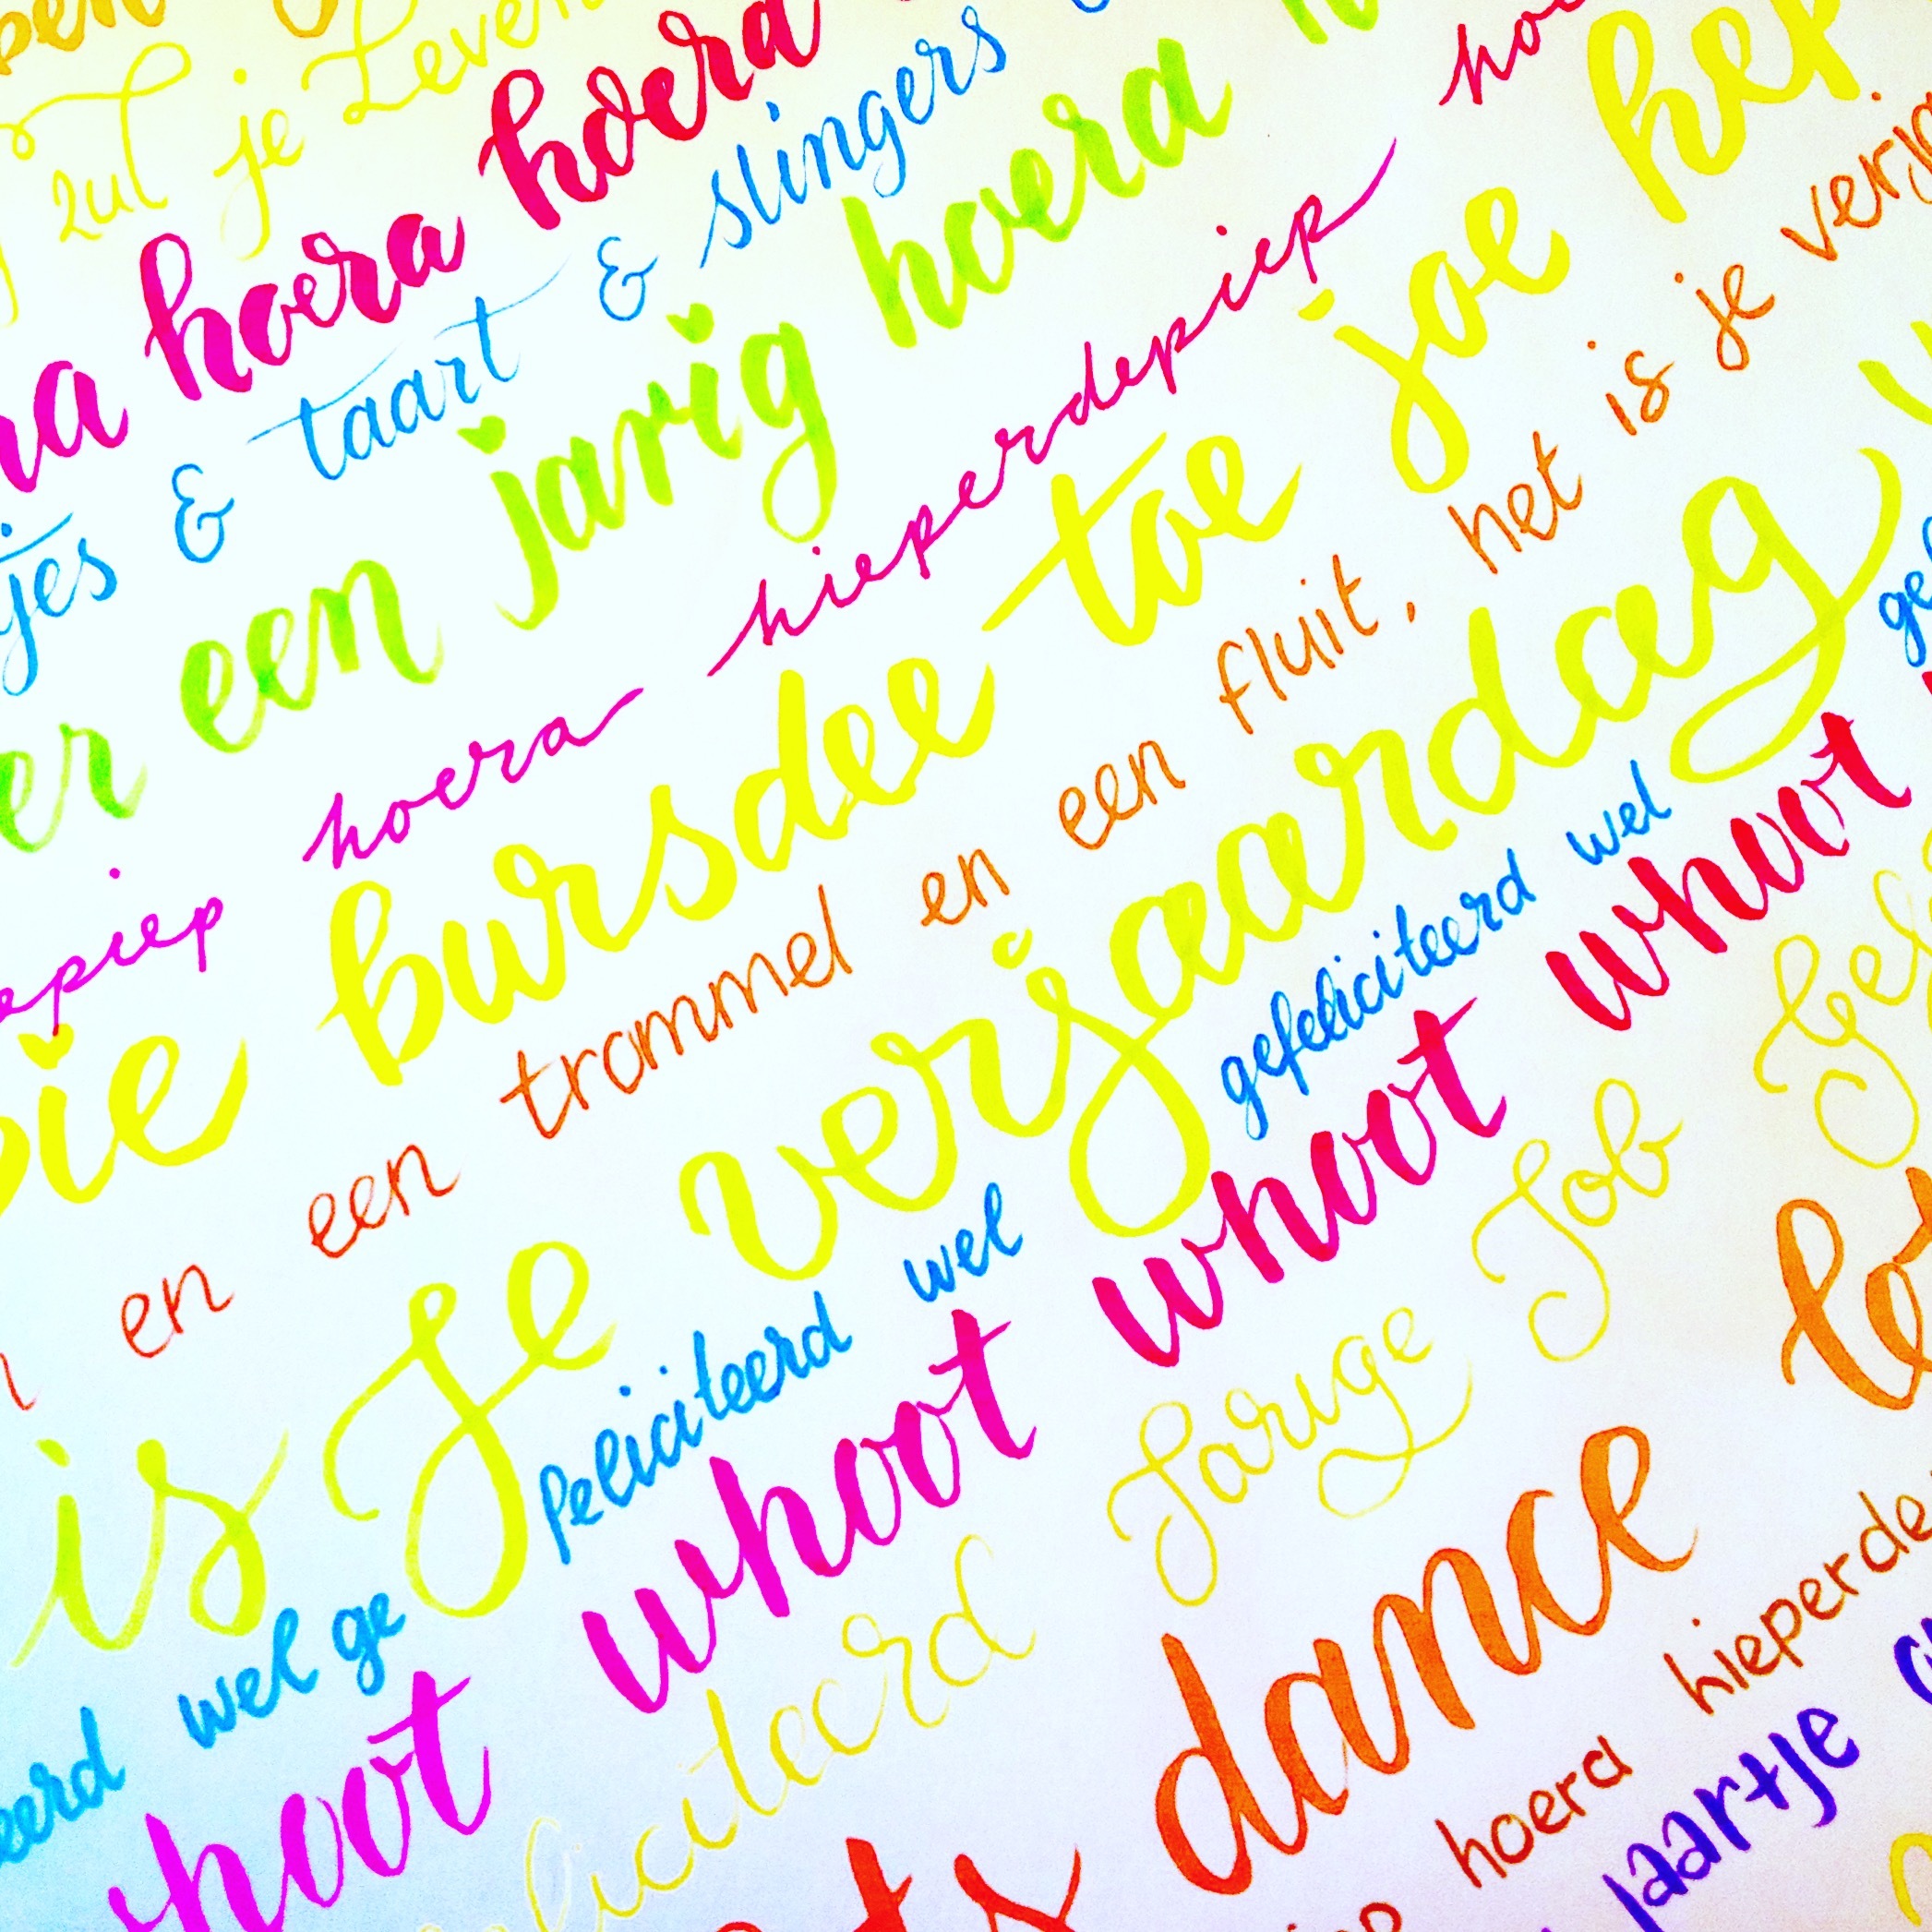 zul je Leven
hoera hoera
& taart & slingers
een jarig hoera
hoera hieperdepiep
bursdee toe joe
en een trommel en een fluit, het is je
is Je verjaardag
wel ge feliciteerd wel gefeliciteerd wel
whoot whoot whoot
Jarige Job
dance
hoera
Jaartje